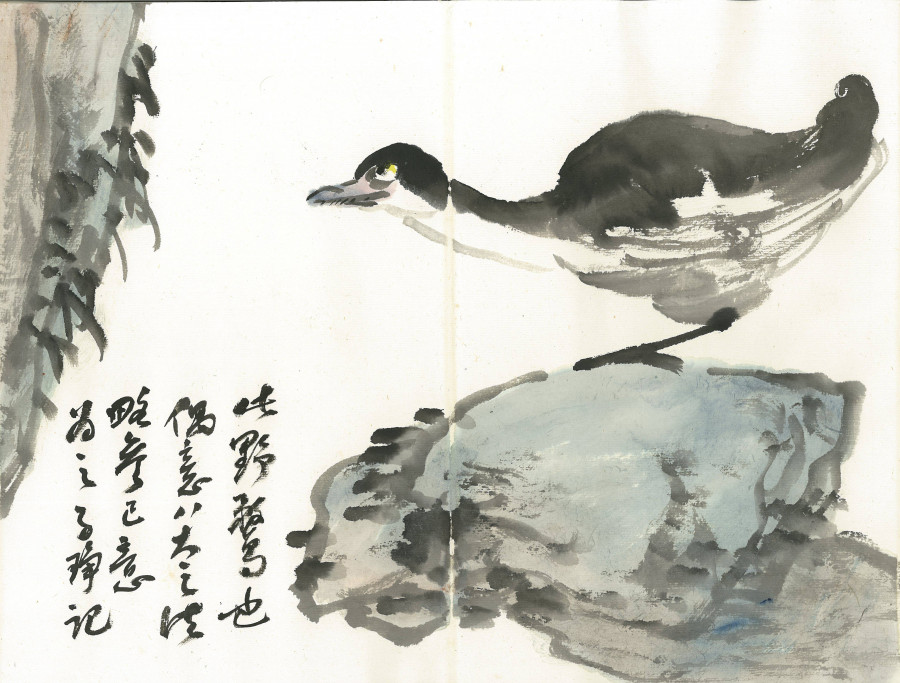 此野鶩也
偶意八大之法
略參己意
為之子記